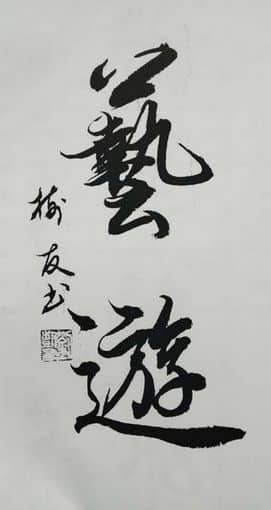 藝遊
樹友书